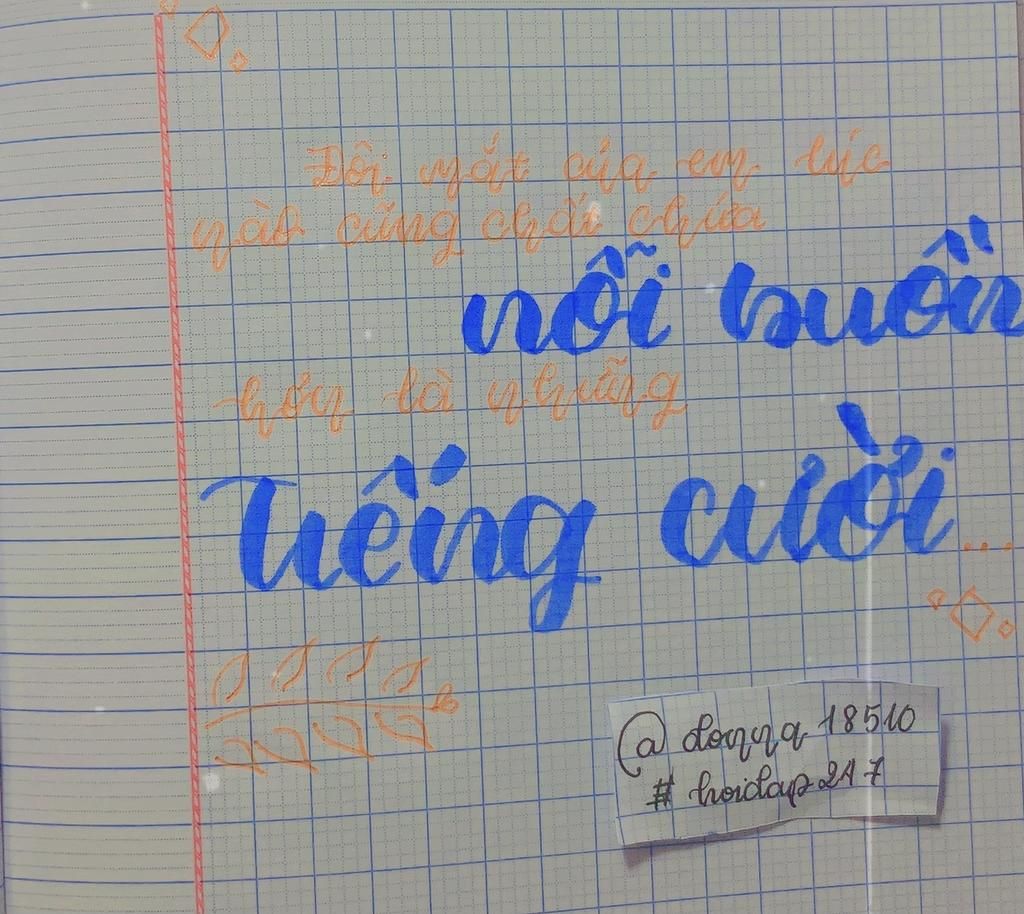 Đôi mắt của em lúc
nào cũng chất chứa
nỗi buồn
hơn là những
Tiếng cười...
@donnq18510
#hoidap247